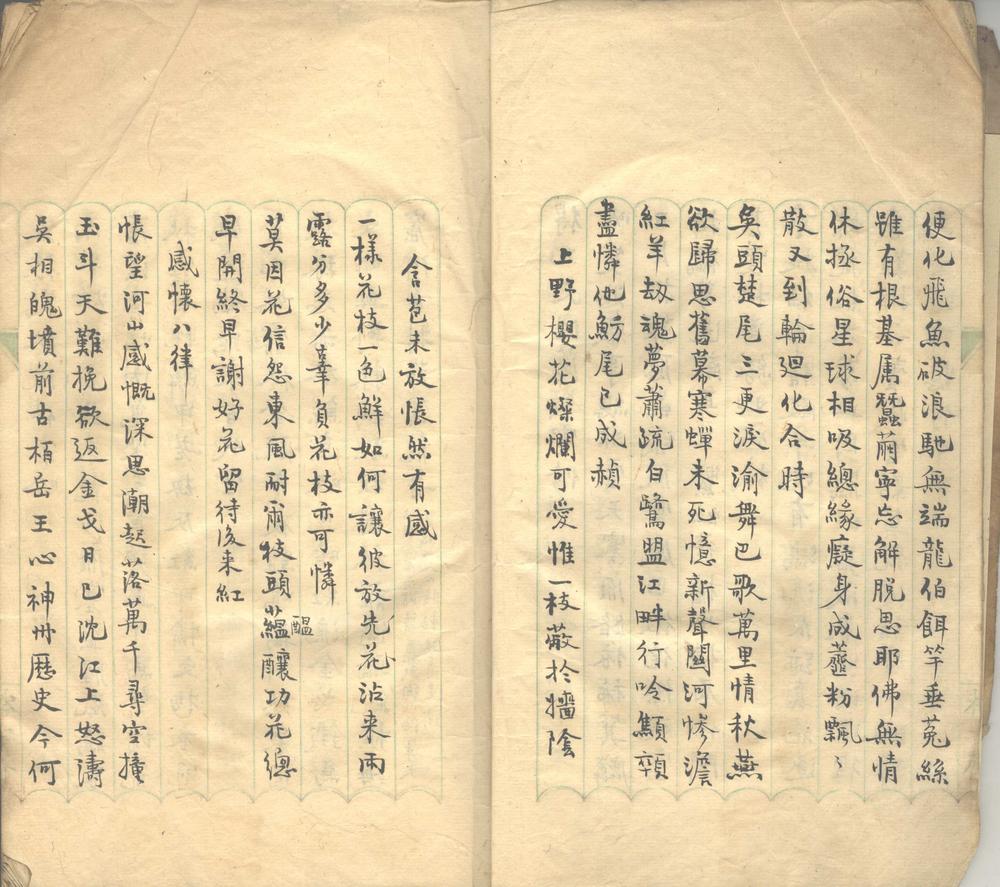 便化飛魚破浪馳無端龍伯餌竿垂菟絲
雖有根基属蠶繭寧忘解脱思耶佛無情
休拯俗星球相吸總緣癡身成虀粉飄〻
散又到輪迴化合時
吳頭楚尾三更淚渝舞巴歌萬里情秋燕
欲歸思舊幕寒蟬未死憶新聲關河慘澹
紅羊劫魂夢蕭疏白鷺盟江畔行吟顦顇
盡憐他魴尾已成赬
上野櫻花燦爛可愛惟一枝蔽於牆陰
含苞未放悵然有感
一樣花枝一色鮮如何讓彼放先花沾来雨
露分多少辜負花枝亦可憐
莫因花信怨東風耐爾枝頭蘊釀功花總
醞
早開終早謝好花留待後来紅
感懷八律
悵望河山感慨深思潮起落萬千尋空撞
玉斗天難挽欲返金戈日已沈江上怒濤
吳相魄墳前古栢岳王心神州歴史今何